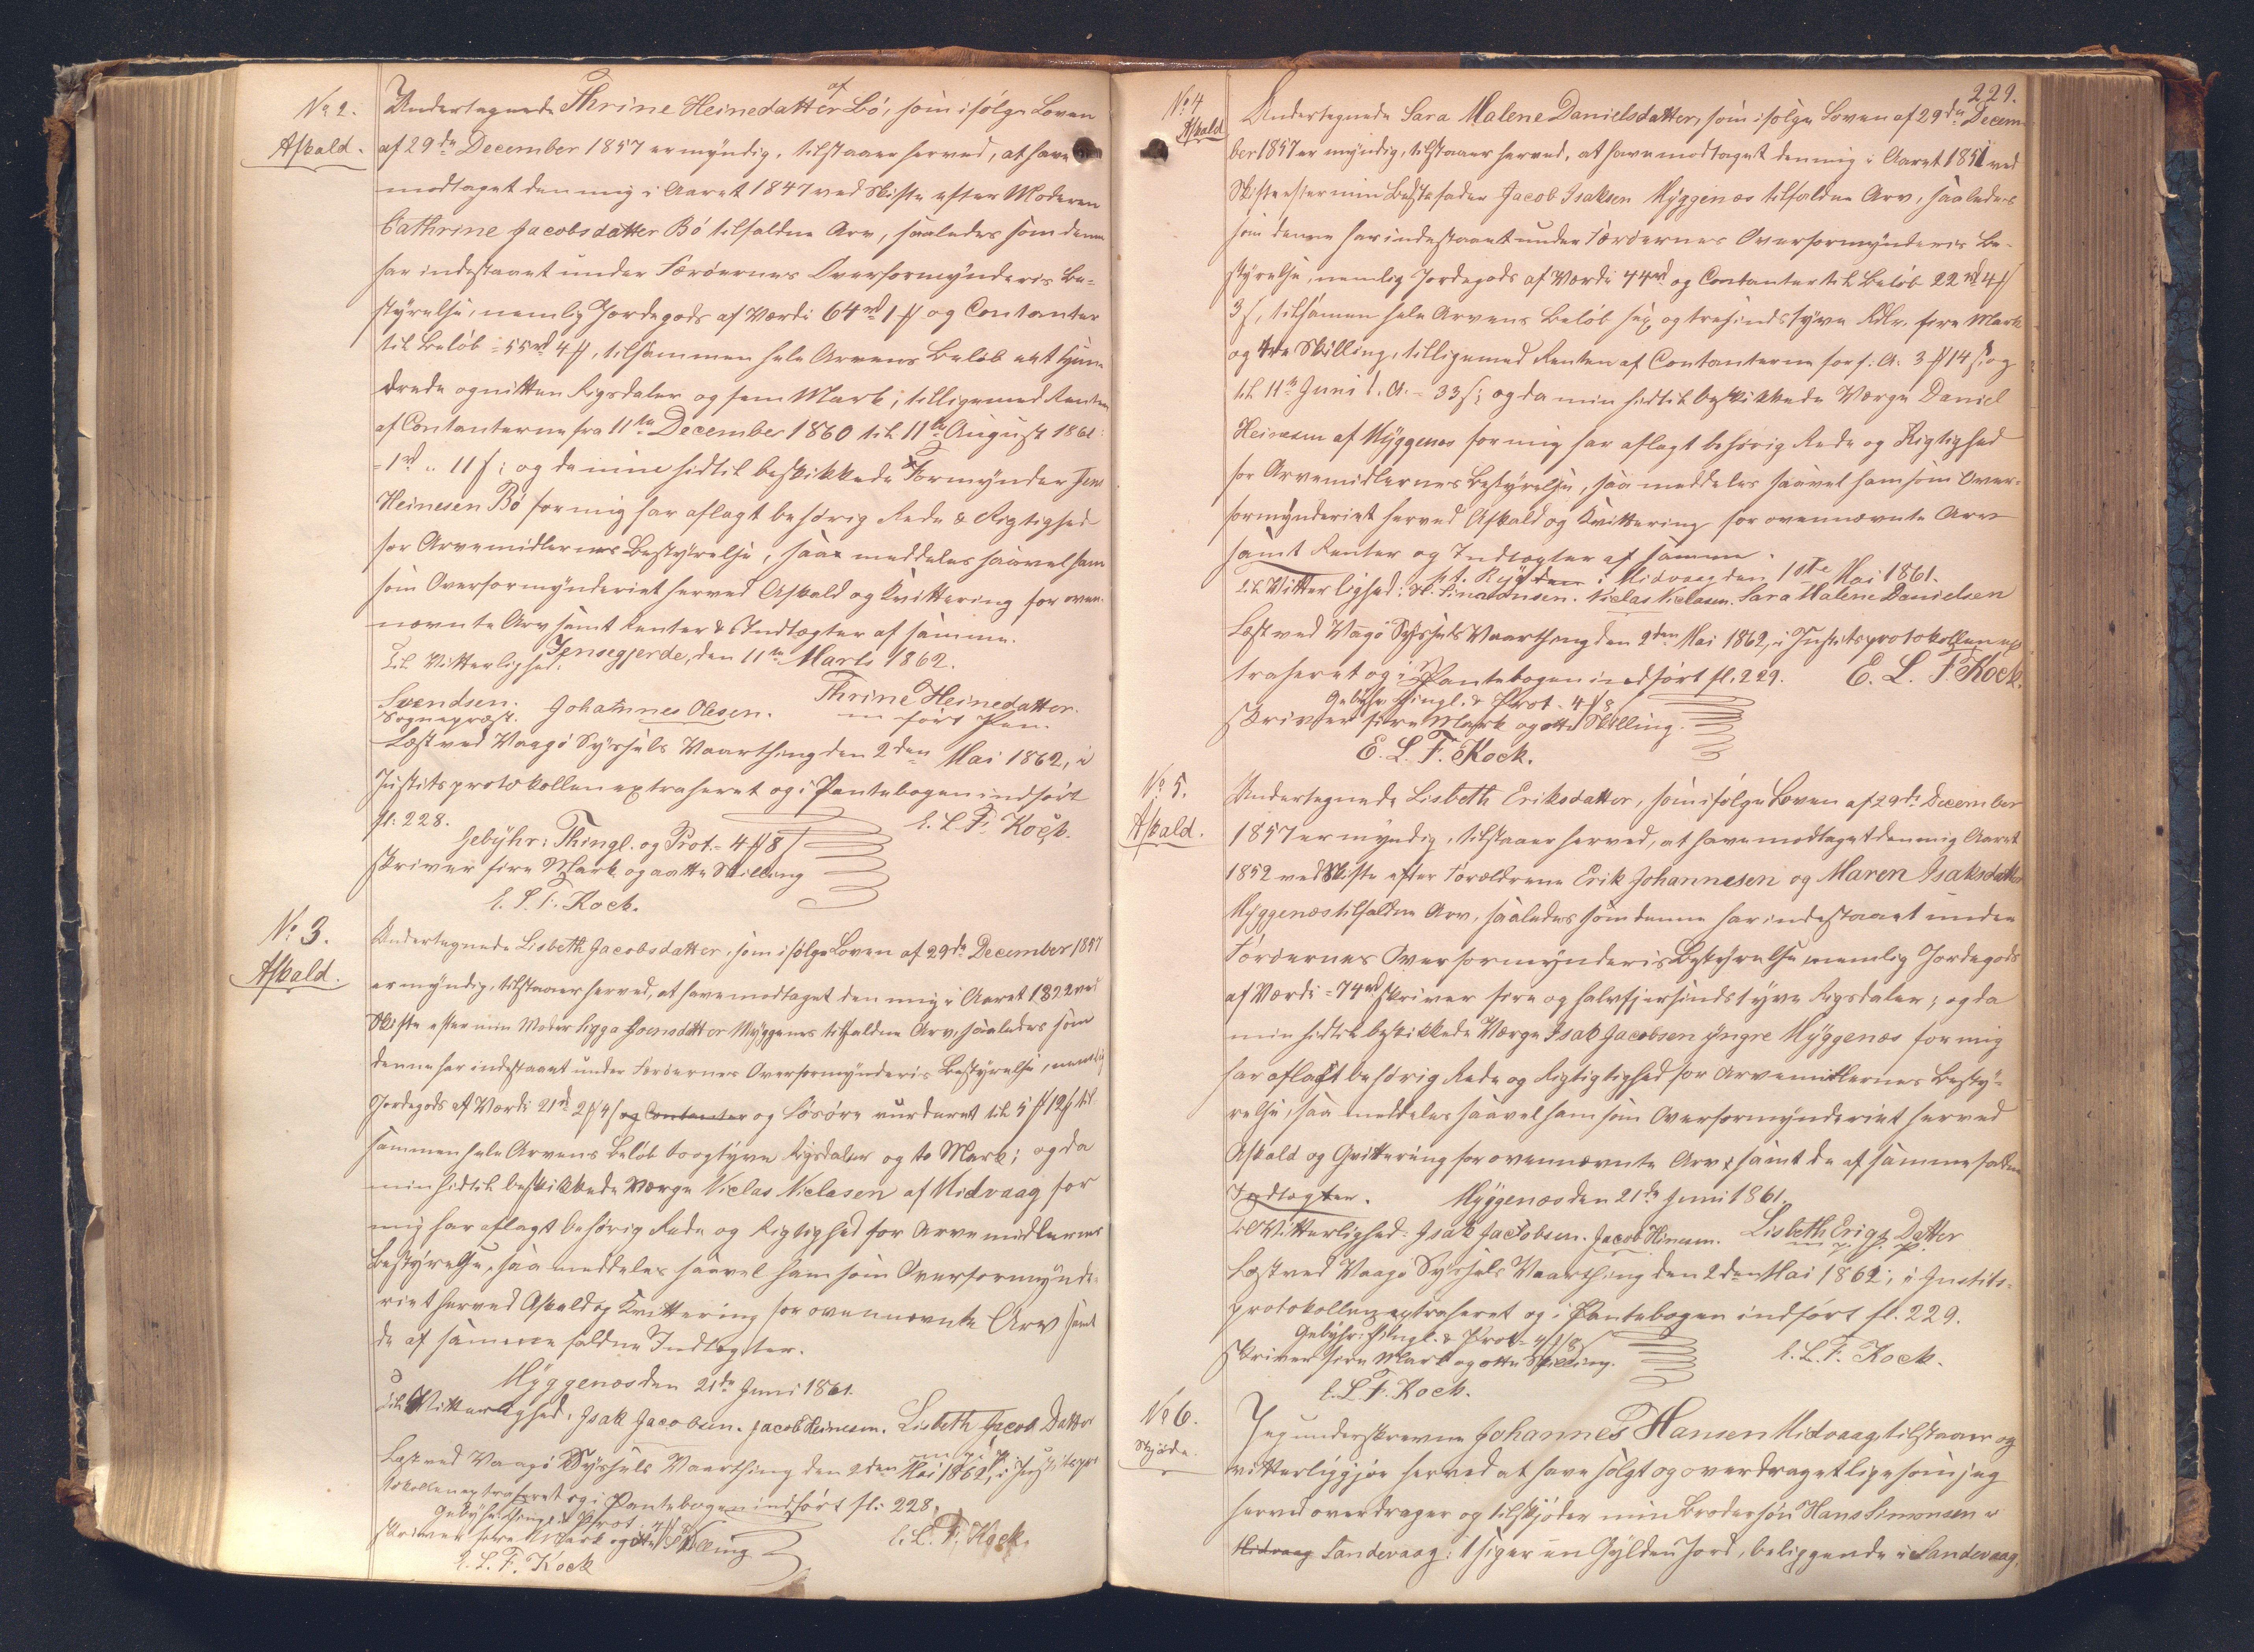 No 2.
Afkald.
Undertegnede Thrine Heinedatter af Bö, som ifölge Loven
af 29de December 1857 er myndig, tilstaaer herved, at have
modtaget den mig i Aaret 1847 ved Skifte efter Moderen
Cathrine Jacobsdatter Bö tilfaldne Arv, saaledes som denne
har indestaaet under Færöernes Overformynderies Be-
styrelse, nemlig Jordegods af Værdi 64rd 1 # og Contanter
til Belöb = 55rd 4 #, tilsammen hele Arvens Belöb eet Hun
drede og nitten Rigsdaler og fem Mark; tilligemed Renten
af Contanterne fra 11te December 1860 til 11te August 1861:
= 1rd " 11 ß; og da min hidtil beskikkede Formynder Jens
Heinesen Bö for mig har aflagt behörig Rede & Rigtighed
for Arvemidlernes Bestyrelse, saa meddeles saavel ham
som Overformynderiet herved Afkald og Kvittering for oven-
nævnte Arv samt Renter & Indtægter af samme.
Jensegjerde, den 11te Marts 1862.
Til Vitterlighed:
Svendsen. Johannes Olesen. Thrine Heinedatter.
Sognepræst. m fört Pen.
Læst ved Vaagö Syssels Vaarthing den 2den Mai 1862, i
Justitsprotokollen extraheret og i Pantebogen indfört
fl: 228. E. L. F. Kock.
Gebyhr: Thingl. og Prot. = 4 # 8 ß
skriver fire Mark og aatte Skilling
E. L. F. Kock.
No 3.
Afkald.
Undertegnede Lisbeth Jacobsdatter, som ifölge Loven af 29de December 1857
er myndig, tilstaaer herved, at have modtaget den mig i Aaret 1822 ved
Skifte efter min Moder Sigga Joensdatter Myggenes tilfaldne Arv, saaledes som
denne har indestaaet under Færöernes Overformynderies Bestyrelse, nemlig
Jordegods af Værdi 21rd 2 # 4 ß og Contanter og Lösöre vurderet til 5 # 12 ß til-
sammen hele Arvens Belöb toogtyve Rigsdaler og to Mark; og da
min hidtil beskikkede Værge Niclas Niclasen af Midvaag for
mig har aflagt behörig Rede og Rigtighed for Arvemidlernes
Bestyrelse, saa meddeles saavel ham som Overformynde-
riet herved Afkald og Kvittering for ovennævnte Arv samt
de af samme faldne Indtægter.
Myggenæs den 21de Juni 1861.
Til Vitterlighed: Isak Jacobsen. Jacob Heinesen. Lisbeth Jacob Datter
m. f. P.
Læst ved Vaagö Syssels Vaarthing den 2den Mai 1862, i Justitspro
tokollen extraheret og i Pantebogen indfört fl: 228.
Gebyhr: Thingl. & Prot. 4 # 8 ß E. L. F. Kock.
skriver fire Mark og otte Skilling
E. L. F. Kock
229.
No 4
Afkald
Undertegnede Sara Malene Danielsdatter, som ifölge Loven af 29de Decem-
ber 1857 er myndig, tilstaaer herved, at have modtaget den mig i Aaret 1851 ved
Skifte efter min Bedstefader Jacob Isaksen Myggenæs tilfaldne Arv, saaledes
som denne har indestaaet under Færöernes Overformynderies Be-
styrelse, nemlig Jordegods af Værdi 44rd og Contanter til Belöb 22rd 4 #
3 ß, tilsamen hele Arvens Belöb sex og tresindstyve Rdlr. fire Mark
og tre Skilling, tilligemed Renten af Contanterne for f. A. 3 # 14 ß og
til 11te Juni d. A. = 33 ß; og da min hidtil beskikkede Værge Daniel
Heinesen af Myggenæs for mig har aflagt behörig Rede og Rigtighed
for Arvemidlernes Bestyrelse, saa meddeles saavel ham som Over-
formynderiet herved Afkald og Kvittering for ovennævnte Arv
samt Renter og Indtægter af samme.
i Midvaag den 1ste Mai 1861.
Til Vitterlighed: H. Simonsen. Niclas Niclasen. Sara Malene Danielsen
Læst ved Vaagö Syssels Vaarthing den 2den Mai 1862, i Justitsprotokollen ex
traheret og i Pantebogen indfört fl. 229. E. L. F. Kock.
Gebyhr: Thingl. & Prot. 4 # 8
skriver fire Mark og otte Skilling.
E. L. F. Kock.
No 5.
Afkald.
Undertegnede Lisbeth Eriksdatter, som ifölge Loven af 29de December
1857 er myndig, tilstaaer herved, at have modtaget den mig Aaret
1852 ved Skifte efter Forældrene Erik Johannesen og Maren Isaksdatter
Myggenæs tilfaldne Arv, saaledes som denne har indestaaet under
Færöernes Overformynderies Bestyrelse, nemlig Jordegods
af Værdi = 74rd skriver fire og halvfjersindstyve Rigsdaler; og da
min hidtil beskikkede Værge Isak Jacobsen yngre Myggenæs for mig
har aflagt behörig Rede og Rigtigtighed for Arvemidlernes Besty-
relse, saa meddeles saavel ham som Overformynderiet herved
Afkald og Qvittering for ovennævnte Arv samt de af samme faldne
Indtægter. Myggenæs den 21de Juni 1861.
Til Vitterlighed: Isak Jacobsen. Jacob Hinesen. Lisbeth Erigs Datter
m. f. P.
Læst ved Vaagö Syssels Vaarthing den 2den Mai 1862, i Justits-
protokollen extraheret og i Pantebogen indfört fl. 229.
Gebyhr: Thingl. & Prot = 4 # 8 ß
skriver fire Mark og otte Skilling. E. L. F. Kock.
E. L. F. Kock.
No 6.
Skjöde.
Jeg underskrevne Johannes Hansen Midvaag, tilstaaer og
vitterliggjör herved at have solgt og overdraget ligesom jeg
herved overdrager og tilskjöder min Brodersön Hans Simonsen i
Midvaag Sandevaag: 1 siger en Gylden Jord, beliggende i Sandevaag,